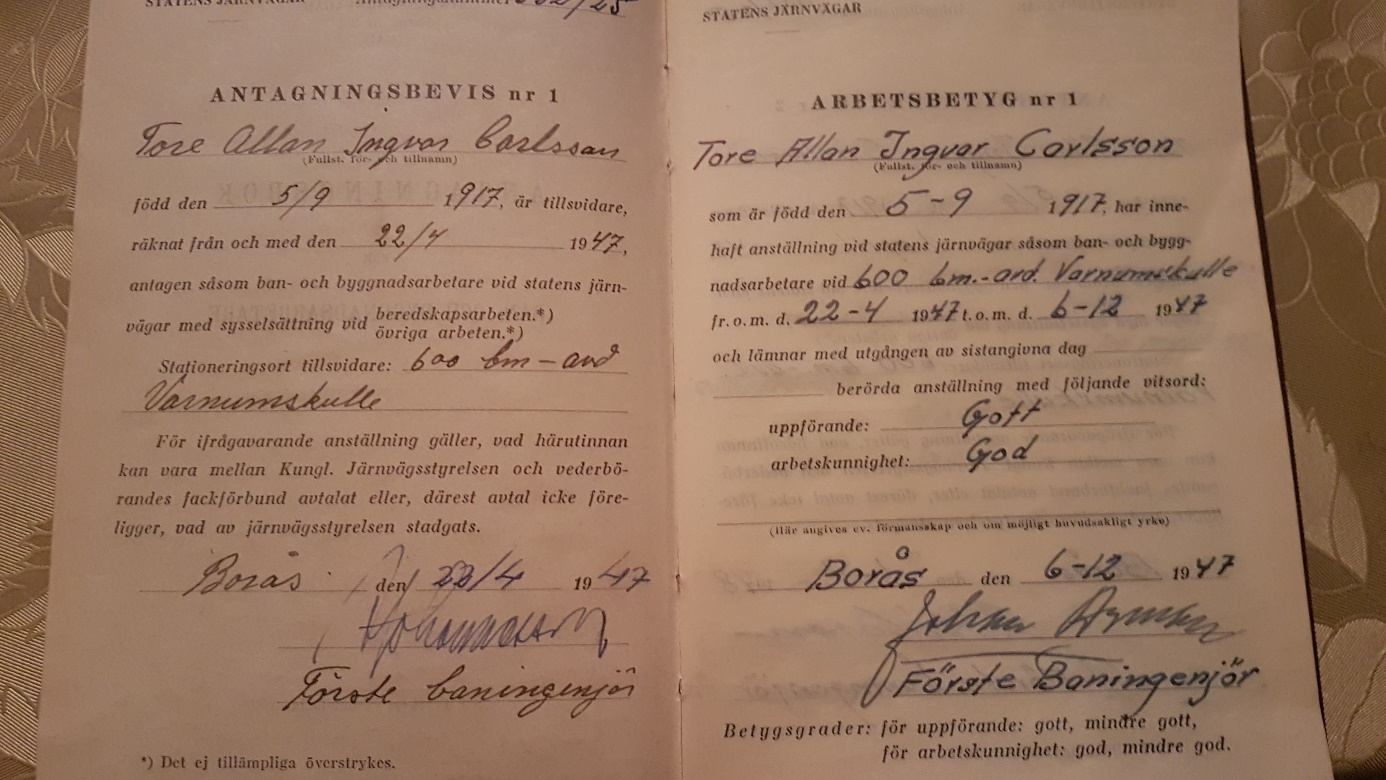 STATENS JÄRNVÄGAR
ANTAGNINGSBEVIS nr 1
Tore Allan Ingvar Carlsson
(Fullst. för- och tillnamn)
född den 5/9 1917, är tillsvidare,
räknat från och med den 22/4 1947,
antagen såsom ban- och byggnadsarbetare vid statens järn-
vägar med sysselsättning vid beredskapsarbeten.*)
övriga arbeten.*)
Stationeringsort tillsvidare: 600 bm-avd
Varnumskulle
För ifrågavarande anställning gäller, vad härutinnan
kan vara mellan Kungl. Järnvägsstyrelsen och vederbö-
randes fackförbund avtalat eller, därest avtal icke före-
ligger, vad av järnvägsstyrelsen stadgats.
Borås den 22/4 1947
Förste baningenjör
*) Det ej tillämpliga överstrykes.
STATENS JÄRNVÄGAR
ARBETSBETYG nr 1
Tore Allan Ingvar Carlsson
(Fullst. för- och tillnamn)
som är född den 5-9 1917, har inne-
haft anställning vid statens järnvägar såsom ban- och bygg-
nadsarbetare vid 600 bm.-avd. Varnumskulle
fr. o. m. d. 22-4 1947 t. o. m. d. 6-12 1947
och lämnar med utgången av sistangivna dag
berörda anställning med följande vitsord:
uppförande: Gott
arbetskunnighet: God
(Här angives ev. förmansskap och om möjligt huvudsakligt yrke)
Borås den 6-12 1947
Förste Baningenjör
Betygsgrader: för uppförande: gott, mindre gott,
för arbetskunnighet: god, mindre god.